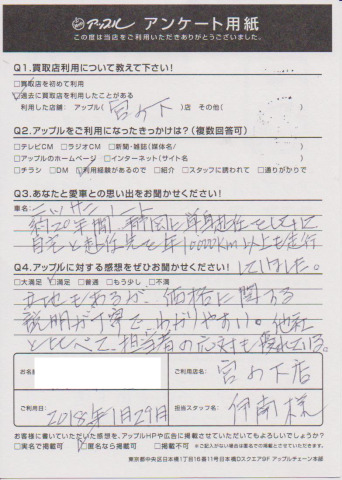 アップル アンケート用紙
この度は当店をご利用いただきありがとうございました。
Q1.買取店利用について教えて下さい!
□買取店を初めて利用
☑過去に買取店を利用したことがある
利用した店舗: アップル( 宮の下 )店 その他( )
Q2.アップルをご利用になったきっかけは?(複数回答可)
□テレビCM □ラジオCM □新聞・雑誌(媒体名/ )
□アップルのホームページ □インターネット(サイト名 )
□チラシ □DM ☑利用経験があるので □紹介 □スタッフに誘われて □通りがかりで
Q3.あなたと愛車との思い出をお聞かせください!
車名: ニッサン ノート
約20年間、静岡に単身赴任をしていて
自宅と赴任先を年10000km以上も走行
していました。
Q4.アップルに対する感想をぜひお聞かせください!
□大満足 ☑満足 □普通 □もう少し □不満
もあるが、価格に関する
説明が丁寧でわかりやすい。他社
と比べて、担当者の応対も優れている。
お名前
ご利用店名: 宮の下店
ご利用日: 2018年1月29日
担当スタッフ名: 伊南様
お客様に書いていただいた感想を、アップルHPや広告に掲載させていただいてもよろしいでしょうか?
□実名で掲載可 ☑匿名なら掲載可 □掲載不可 ※ご記入がない場合は匿名での掲載とさせていただきます。
東京都中央区日本橋1丁目16番11号日本橋Dスクエア9F アップルチェーン本部